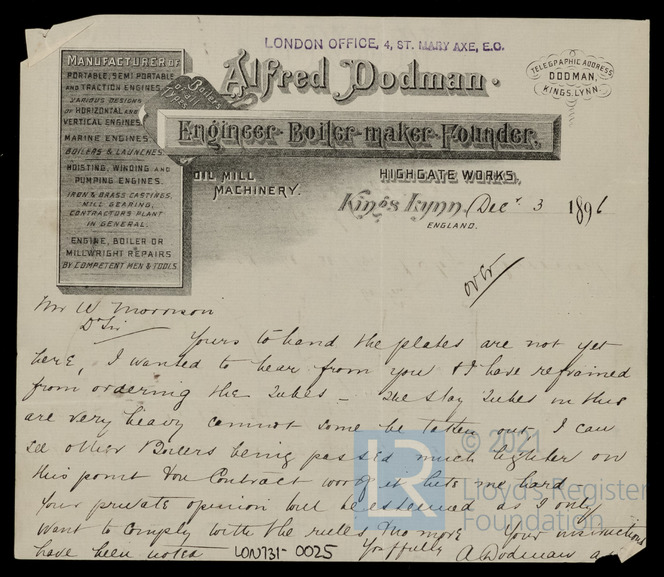 LONDON OFFICE, 4, ST. MARY AXE, E.C.
MANUFACTURER OF
PORTABLE, SEMI PORTABLE
AND TRACTION ENGINES,
VARIOUS DESIGNS
OF HORIZONTAL AND
VERTICAL ENGINES
MARINE ENGINES.
BOILERS & LAUNCHES.
HOISTING, WINDING AND
PUMPING ENGINES.
IRON & BRASS CASTINGS,
MILL GEARING,
CONTRACTORS PLANT
IN GENERAL.
ENGINE, BOILER OR
MILLWRIGHT REPAIRS
BY COMPETENT MEN & TOOLS.
Boilers
of all
Types
Alfred Dodman.
Engineer-Boiler-maker-Founder,
OIL MILL
MACHINERY.
HIGHGATE WORKS,
Kings Lynn, Decr 3 1896
ENGLAND.
TELEGRAPHIC ADDRESS
DODMAN,
KINGS, LYNN.
over
Mr W Morrison
Dr Sir
Yours to hand the plates are not yet
here, I wanted to hear from you & I have refrained
from ordering the Tubes - The Stay Tubes in this
are very heavy cannot some be taken out, I can
see other Boilers being passed much lighter on
this point For Contract work it hits me hard -
Your private opinion will be esteemed as I only
want to comply with the rules & no more Your instructions
have been noted Yrs ffully A Dodman
LON731-0025
© 2021
LR
Lloyd's Register
Foundation